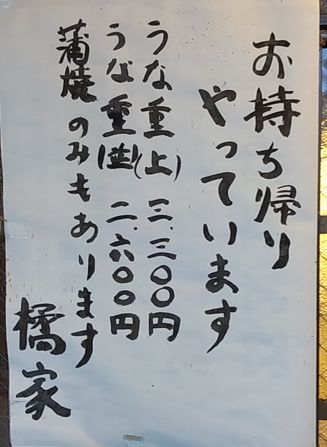 お持ち帰り
やっています
うな重(上) 三、三〇〇円
うな重(並) 二、六〇〇円
蒲焼のみもあります
橘家